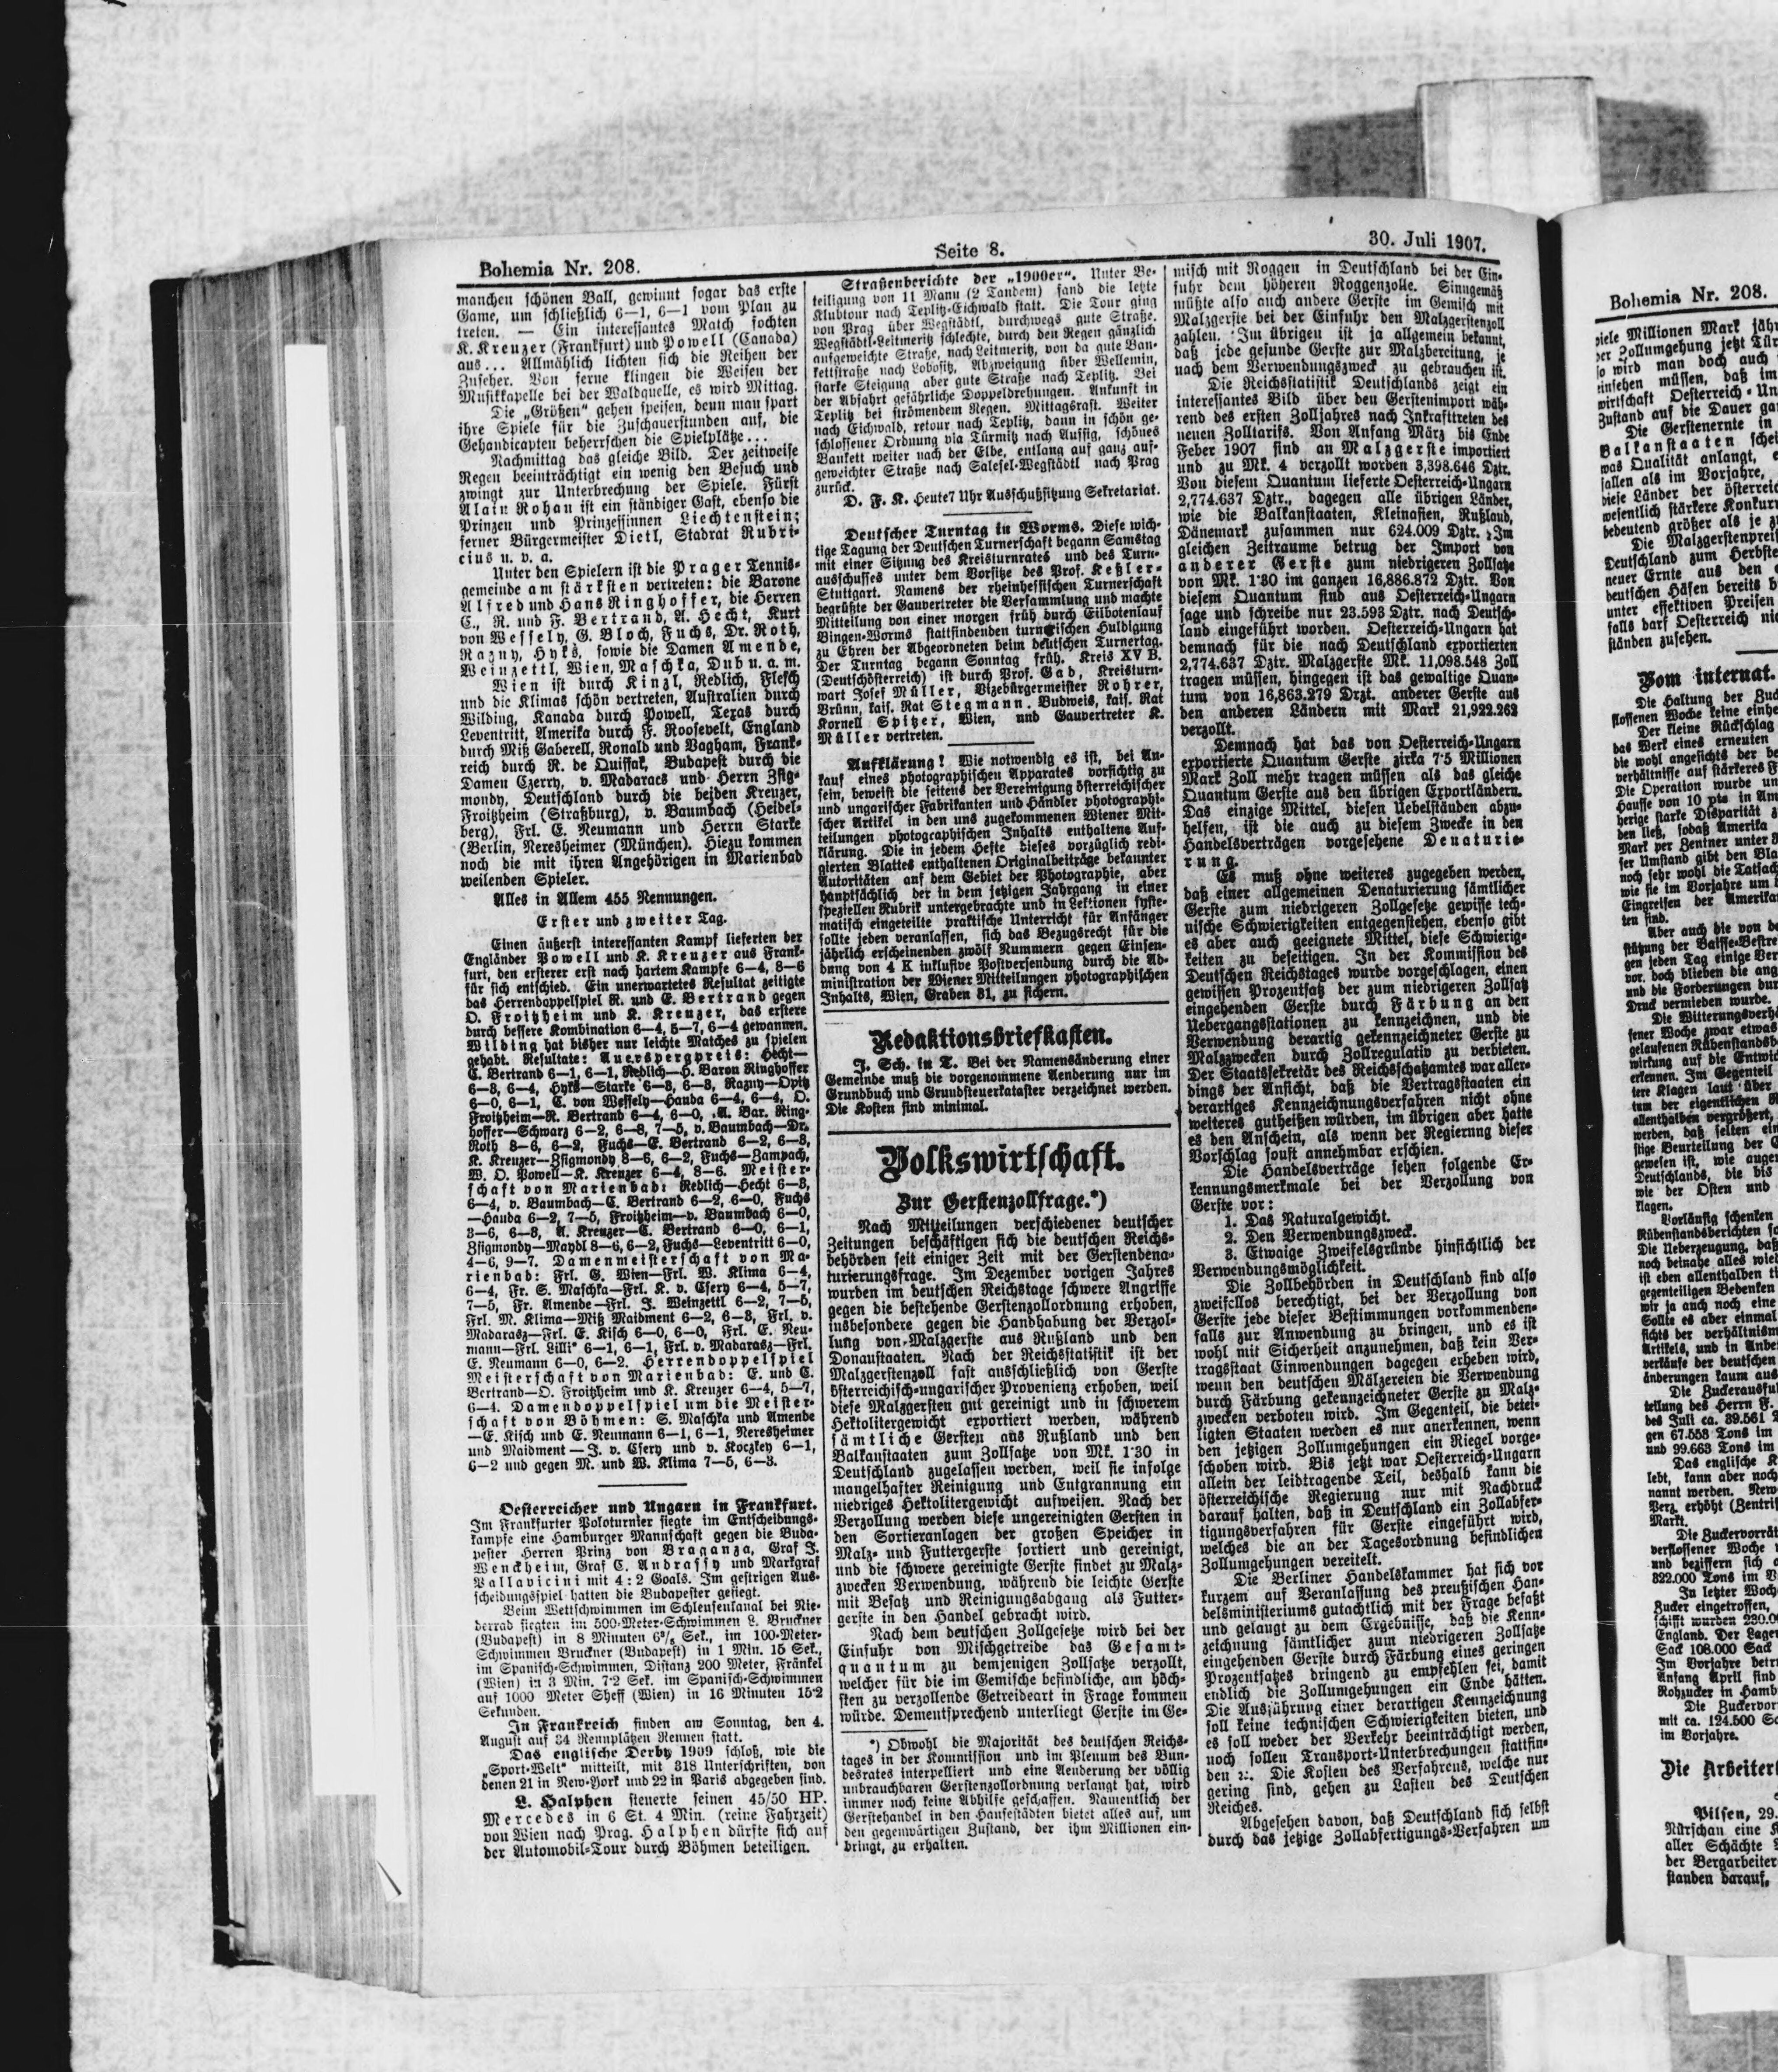 Bohemia Nr. 208.
Seite 8.
30. Juli 1907.
manchen schönen Ball, gewinnt sogar das erste
Game, um schließlich 6—1, 6—1 vom Plan zu
treten. — Ein interessantes Match fochten
K. Kreuzer (Frankfurt) und Powell (Canada)
aus... Allmählich lichten sich die Reihen der
Zuseher. Von ferne klingen die Weisen der
Musikkapelle bei der Waldquelle, es wird Mittag.
Die „Größen“ gehen speisen, denn man spart
ihre Spiele für die Zuschauerstunden auf, die
Gehandicapten beherrschen die Spielplätze...
Nachmittag das gleiche Bild. Der zeitweise
Regen beeinträchtigt ein wenig den Besuch und
zwingt zur Unterbrechung der Spiele. Fürst
Alain Rohan ist ein ständiger Gast, ebenso die
Prinzen und Prinzessinnen Liechtenstein;
ferner Bürgermeister Dietl, Stadrat Rubri-
cius u. v. a.
Unter den Spielern ist die Prager Tennis-
gemeinde am stärksten vertreten: die Barone
Alfred und Hans Ringhoffer, die Herren
C., R. und F. Bertrand, A. Hecht, Kurt
von Wessely, G. Bloch, Fuchs, Dr. Roth,
Razny, Hyks, sowie die Damen Amende,
Weinzettl, Wien, Maschka, Dub u. a. m.
Wien ist durch Kinzl, Redlich, Flesch
und die Klimas schön vertreten, Australien durch
Wilding, Kanada durch Powell, Texas durch
Leventritt, Amerika durch F. Roosevelt, England
durch Miß Gaberell, Ronald und Vagham, Frank-
reich durch R. de Quissak, Budapest durch die
Damen Czerry, v. Madaracs und Herrn Zsig-
mondy, Deutschland durch die beiden Kreuzer,
Froitzheim (Straßburg), v. Baumbach (Heidel-
berg), Frl. E. Neumann und Herrn Starke
(Berlin, Neresheimer (München). Hiezu kommen
noch die mit ihren Angehörigen in Marienbad
weilenden Spieler.
Alles in Allem 455 Nennungen.
Erster und zweiter Tag.
Einen äußerst interessanten Kampf lieferten der
Engländer Powell und K. Kreuzer aus Frank-
furt, den ersterer erst nach hartem Kampfe 6—4, 8—6
für sich entschied. Ein unerwartetes Resultat zeitigte
das Herrendoppelspiel R. und E. Bertrand gegen
O. Froitzheim und K. Kreuzer, das erstere
durch bessere Kombination 6—4, 5—7, 6—4 gewannen.
Wilding hat bisher nur leichte Matches zu spielen
gehabt. Resultate: Auerspergpreis: Hecht—
C. Bertrand 6—1, 6—1, Redlich—H. Baron Ringhoffer
6—3, 6—4, Hyks—Starke 6—3, 6—3, Razny—Opitz
6—0, 6—1, C. von Wessely—Handa 6—4, 6—4, O.
Froitzheim—R. Bertrand 6—4, 6—0, A. Bar. Ring-
hoffer—Schwarz 6—2, 6—3, 7—5, v. Baumbach—Dr.
Roth 8—6, 6—2, Fuchs—E. Bertrand 6—2, 6—3,
K. Kreuzer—Zsigmondy 8—6, 6—2, Fuchs—Zampach,
W. O. Powell—K. Kreuzer 6—4, 8—6. Meister-
schaft von Marienbad: Redlich—Hecht 6—3,
6—4, v. Baumbach—C. Bertrand 6—2, 6—0, Fuchs
—Handa 6—2, 7—5, Froitzheim—v. Baumbach 6—0,
3—6, 6—3, A. Kreuzer—C. Bertrand 6—0, 6—1,
Zsigmondy—Maydl 8—6, 6—2, Fuchs—Leventritt 6—0,
4—6, 9—7. Damenmeisterschaft von Ma-
rienbad: Frl. G. Wien—Frl. W. Klima 6—4,
6—4, Fr. S. Maschka—Frl. K. v. Csery 6—4, 5—7,
7—5, Fr. Amende—Frl. J. Weinzettl 6—2, 7—5,
Frl. M. Klima—Miß Maidment 6—2, 6—3, Frl. v.
Madarasz—Frl. E. Kisch 6—0, 6—0, Frl. E. Neu-
mann—Frl. Lilli 6—1, 6—1, Frl. v. Madarasz—Frl.
E. Neumann 6—0, 6—2. Herrendoppelspiel
Meisterschaft von Marienbad: E. und C.
Bertrand—O. Froitzheim und K. Kreuzer 6—4, 5—7,
6—4. Damendoppelspiel um die Meister-
schaft von Böhmen: S. Maschka und Amende
—E. Kisch und E. Neumann 6—1, 6—1, Neresheimer
und Maidment — J. v. Csery und v. Koczkey 6—1,
6—2 und gegen M. und W. Klima 7—5, 6—3.
Oesterreicher und Ungarn in Frankfurt.
Im Frankfurter Poloturnier siegte im Entscheidungs-
kampfe eine Hamburger Mannschaft gegen die Buda-
pester Herren Prinz von Braganza, Graf J.
Wenckheim, Graf C. Andrassy und Markgraf
Pallavicini mit 4:2 Goals. Im gestrigen Aus-
scheidungsspiel hatten die Budapester gesiegt.
Beim Wettschwimmen im Schleusenkanal bei Nie-
derrad siegten im 500-Meter-Schwimmen L. Bruckner
(Budapest) in 8 Minuten 6³/₅ Sek., im 100-Meter-
Schwimmen Bruckner (Budapest) in 1 Min. 15 Sek.,
im Spanisch-Schwimmen, Distanz 200 Meter, Fränkel
(Wien) in 3 Min. 7·2 Sek. im Spanisch-Schwimmen
auf 1000 Meter Sheff (Wien) in 16 Minuten 15·2
Sekunden.
In Frankreich finden am Sonntag, den 4.
August auf 34 Rennplätzen Rennen statt.
Das englische Derby 1909 schloß, wie die
„Sport-Welt“ mitteilt, mit 318 Unterschriften, von
denen 21 in New-York und 22 in Paris abgegeben sind.
L. Halphen steuerte seinen 45/50 HP.
Mercedes in 6 St. 4 Min. (reine Fahrzeit)
von Wien nach Prag. Halphen dürfte sich auf
der Automobil-Tour durch Böhmen beteiligen.
Straßenberichte der „1900er“. Unter Be-
teiligung von 11 Mann (2 Tandem) fand die letzte
Klubtour nach Teplitz-Eichwald statt. Die Tour ging
von Prag über Wegstädtl, durchwegs gute Straße.
Wegstädtl-Leitmeritz schlechte, durch den Regen gänzlich
aufgeweichte Straße, nach Leitmeritz, von da gute Ban-
kettstraße nach Lobositz, Abzweigung über Wellemin,
starke Steigung aber gute Straße nach Teplitz. Bei
der Abfahrt gefährliche Doppeldrehungen. Ankunft in
Teplitz bei strömendem Regen. Mittagsrast. Weiter
nach Eichwald, retour nach Teplitz, dann in schön ge-
schlossener Ordnung via Türmitz nach Aussig, schönes
Bankett weiter nach der Elbe, entlang auf ganz auf-
geweichter Straße nach Salesel-Wegstädtl nach Prag
zurück.
D. F. K. Heute 7 Uhr Ausschußsitzung Sekretariat.
Deutscher Turntag in Worms. Diese wich-
tige Tagung der Deutschen Turnerschaft begann Samstag
mit einer Sitzung des Kreisturnrates und des Turn-
ausschusses unter dem Vorsitze des Prof. Keßler-
Stuttgart. Namens der rheinhessischen Turnerschaft
begrüßte der Gauvertreter die Versammlung und machte
Mitteilung von einer morgen früh durch Eilbotenlauf
Bingen-Worms stattfindenden turnerischen Huldigung
zu Ehren der Abgeordneten beim deutschen Turnertag.
Der Turntag begann Sonntag früh. Kreis XV B.
(Deutschösterreich) ist durch Prof. Gad, Kreisturn-
wart Josef Müller, Vizebürgermeister Rohrer,
Brünn, kais. Rat Stegmann. Budweis, kais. Rat
Kornell Spitzer, Wien, und Gauvertreter K.
Müller vertreten.
Aufklärung! Wie notwendig es ist, bei An-
kauf eines photographischen Apparates vorsichtig zu
sein, beweist die seitens der Vereinigung österreichischer
und ungarischer Fabrikanten und Händler photographi-
scher Artikel in den uns zugekommenen Wiener Mit-
teilungen photographischen Inhalts enthaltene Auf-
klärung. Die in jedem Hefte dieses vorzüglich redi-
gierten Blattes enthaltenen Originalbeiträge bekannter
Autoritäten auf dem Gebiet der Photographie, aber
hauptsächlich der in dem jetzigen Jahrgang in einer
speziellen Rubrik untergebrachte und in Lektionen syste-
matisch eingeteilte praktische Unterricht für Anfänger
sollte jeden veranlassen, sich das Bezugsrecht für die
jährlich erscheinenden zwölf Nummern gegen Einsen-
dung von 4 K inklusive Postversendung durch die Ad-
ministration der Wiener Mitteilungen photographischen
Inhalts, Wien, Graben 31, zu sichern.
Redaktionsbriefkasten.
J. Sch. in T. Bei der Namensänderung einer
Gemeinde muß die vorgenommene Aenderung nur im
Grundbuch und Grundsteuerkataster verzeichnet werden.
Die Kosten sind minimal.
Volkswirtschaft.
Zur Gerstenzollfrage.*)
Nach Mitteilungen verschiedener deutscher
Zeitungen beschäftigen sich die deutschen Reichs-
behörden seit einiger Zeit mit der Gerstendena-
turierungsfrage. Im Dezember vorigen Jahres
wurden im deutschen Reichstage schwere Angriffe
gegen die bestehende Gerstenzollordnung erhoben,
insbesondere gegen die Handhabung der Verzol-
lung von Malzgerste aus Rußland und den
Donaustaaten. Nach der Reichsstatistik ist der
Malzgerstenzoll fast ausschließlich von Gerste
österreichisch-ungarischer Provenienz erhoben, weil
diese Malzgersten gut gereinigt und in schwerem
Hektolitergewicht exportiert werden, während
sämtliche Gersten aus Rußland und den
Balkanstaaten zum Zollsatze von Mk. 1·30 in
Deutschland zugelassen werden, weil sie infolge
mangelhafter Reinigung und Entgrannung ein
niedriges Hektolitergewicht aufweisen. Nach der
Verzollung werden diese ungereinigten Gersten in
den Sortieranlagen der großen Speicher in
Malz- und Futtergerste sortiert und gereinigt,
und die schwere gereinigte Gerste findet zu Malz-
zwecken Verwendung, während die leichte Gerste
mit Besatz und Reinigungsabgang als Futter-
gerste in den Handel gebracht wird.
Nach dem deutschen Zollgesetze wird bei der
Einfuhr von Mischgetreide das Gesamt-
quantum zu demjenigen Zollsatze verzollt,
welcher für die im Gemische befindliche, am höch-
sten zu verzollende Getreideart in Frage kommen
würde. Dementsprechend unterliegt Gerste im Ge-
*) Obwohl die Majorität des deutschen Reichs-
tages in der Kommission und im Plenum des Bun-
desrates interpelliert und eine Aenderung der völlig
unbrauchbaren Gerstenzollordnung verlangt hat, wird
immer noch keine Abhilfe geschaffen. Namentlich der
Gerstehandel in den Hansestädten bietet alles auf, um
den gegenwärtigen Zustand, der ihm Millionen ein-
bringt, zu erhalten.
misch mit Roggen in Deutschland bei der Ein-
fuhr dem höheren Roggenzolle. Sinngemäß
müßte also auch andere Gerste im Gemisch mit
Malzgerste bei der Einfuhr den Malzgerstenzoll
zahlen. Im übrigen ist ja allgemein bekannt,
daß jede gesunde Gerste zur Malzbereitung, je
nach dem Verwendungszweck zu gebrauchen ist.
Die Reichsstatistik Deutschlands zeigt ein
interessantes Bild über den Gerstenimport wäh-
rend des ersten Zolljahres nach Inkrafttreten des
neuen Zolltarifs. Von Anfang März bis Ende
Feber 1907 sind an Malzgerste importiert
und zu Mk. 4 verzollt worden 3,398.646 Dztr.
Von diesem Quantum lieferte Oesterreich-Ungarn
2,774.637 Dztr., dagegen alle übrigen Länder,
wie die Balkanstaaten, Kleinasien, Rußland,
Dänemark zusammen nur 624.009 Dztr. Im
gleichen Zeitraume betrug der Import von
anderer Gerste zum niedrigeren Zollsatze
von Mk. 1·30 im ganzen 16,886.872 Dztr. Von
diesem Quantum sind aus Oesterreich-Ungarn
sage und schreibe nur 23.593 Dztr. nach Deutsch-
land eingeführt worden. Oesterreich-Ungarn hat
demnach für die nach Deutschland exportierten
2,774.637 Dztr. Malzgerste Mk. 11,098.548 Zoll
tragen müssen, hingegen ist das gewaltige Quan-
tum von 16,863.279 Drzt. anderer Gerste aus
den anderen Ländern mit Mark 21,922.262
verzollt.
Demnach hat das von Oesterreich-Ungarn
exportierte Quantum Gerste zirka 7·5 Millionen
Mark Zoll mehr tragen müssen als das gleiche
Quantum Gerste aus den übrigen Exportländern.
Das einzige Mittel, diesen Uebelständen abzu-
helfen, ist die auch zu diesem Zwecke in den
Handelsverträgen vorgesehene Denaturie-
rung.
Es muß ohne weiteres zugegeben werden,
daß einer allgemeinen Denaturierung sämtlicher
Gerste zum niedrigeren Zollgesetze gewisse tech-
nische Schwierigkeiten entgegenstehen, ebenso gibt
es aber auch geeignete Mittel, diese Schwierig-
keiten zu beseitigen. In der Kommission des
Deutschen Reichstages wurde vorgeschlagen, einen
gewissen Prozentsatz der zum niedrigeren Zollsatz
eingehenden Gerste durch Färbung an den
Uebergangsstationen zu kennzeichnen, und die
Verwendung derartig gekennzeichneter Gerste zu
Malzzwecken durch Zollregulativ zu verbieten.
Der Staatssekretär des Reichsschatzamtes war aller-
dings der Ansicht, daß die Vertragsstaaten ein
derartiges Kennzeichnungsverfahren nicht ohne
weiteres gutheißen würden, im übrigen aber hatte
es den Anschein, als wenn der Regierung dieser
Vorschlag sonst annehmbar erschien.
Die Handelsverträge sehen folgende Er-
kennungsmerkmale bei der Verzollung von
Gerste vor:
1. Das Naturalgewicht.
2. Den Verwendungszweck.
3. Etwaige Zweifelsgründe hinsichtlich der
Verwendungsmöglichkeit.
Die Zollbehörden in Deutschland sind also
zweifellos berechtigt, bei der Verzollung von
Gerste jede dieser Bestimmungen vorkommenden-
falls zur Anwendung zu bringen, und es ist
wohl mit Sicherheit anzunehmen, daß kein Ver-
tragsstaat Einwendungen dagegen erheben wird,
wenn den deutschen Mälzereien die Verwendung
durch Färbung gekennzeichneter Gerste zu Malz-
zwecken verboten wird. Im Gegenteil, die betei-
ligten Staaten werden es nur anerkennen, wenn
den jetzigen Zollumgehungen ein Riegel vorge-
schoben wird. Bis jetzt war Oesterreich-Ungarn
allein der leidtragende Teil, deshalb kann die
österreichische Regierung nur mit Nachdruck
darauf halten, daß in Deutschland ein Zollabfer-
tigungsverfahren für Gerste eingeführt wird,
welches die an der Tagesordnung befindlichen
Zollumgehungen vereitelt.
Die Berliner Handelskammer hat sich vor
kurzem auf Veranlassung des preußischen Han-
delsministeriums gutachtlich mit der Frage befaßt
und gelaugt zu dem Ergebnisse, daß die Kenn-
zeichnung sämtlicher zum niedrigeren Zollsatze
eingehenden Gerste durch Färbung eines geringen
Prozentsatzes dringend zu empfehlen sei, damit
endlich die Zollumgehungen ein Ende hätten.
Die Ausführung einer derartigen Kennzeichnung
soll keine technischen Schwierigkeiten bieten, und
es soll weder der Verkehr beeinträchtigt werden,
noch sollen Transport-Unterbrechungen stattfin-
den ec. Die Kosten des Verfahrens, welche nur
gering sind, gehen zu Lasten des Deutschen
Reiches.
Abgesehen davon, daß Deutschland sich selbst
durch das jetzige Zollabfertigungs-Verfahren um
Bohemia Nr. 208.
viele Millionen Mark
der Zollumgehung jetzt
so wird man doch auch
einsehen müssen, daß im
wirtschaft Oesterreich-Un
Zustand auf die Dauer
Die Gerstenernte in
Balkanstaaten
was Qualität anlangt,
fallen als im Vorjahre,
diese Länder der
wesentlich stärkere
bedeutend größer als je
Die Malzgerstenpreis
Deutschland zum Herbste
neuer Ernte aus den
deutschen Häfen bereits
unter effektiven Preisen
falls darf Oesterreich
ständen zusehen.
Vom internat.
Die Haltung der
flossenen Woche keine
Der kleine Rückschlag
das Werk eines erneuten
die wohl angesichts der
verhältnisse auf stärkeres
Die Operation wurde
Hausse von 10 pts in
herige starke Disparität
den ließ, sodaß Amerika
Mark per Zentner unter
ser Umstand gibt den
noch sehr wohl die
wie sie im Vorjahre um
Eingreifen der
ten sind.
Aber auch die von
stützung der
gen jeden Tag einige
vor, doch blieben die
und die Forderungen
Druck vermieden wurde.
Die
sener Woche zwar etwas
gelaufenen
wirkung auf die
erkennen. Im Gegenteil
tere Klagen laut über
tum der eigentlichen
allenthalben vergrößert,
werden, daß selten
stige Beurteilung der
gewesen ist, wie
Deutschlands, die bis
wie der Osten und
klagen.
Vorläufig schenken
Rübenstandsberichten
Die Ueberzeugung, daß
noch beinahe alles
ist eben allenthalben
gegenteiligen Bedenken
wir ja auch noch eine
Sollte es aber einmal
sichts der
Artikels, und in
verläufe der deutschen
änderungen kaum
Die
teilung des Herrn F.
des Juli ca. 89.561
gen 67.558 Tons im
und 99.663 Tons im
Das englische
lebt, kann aber noch
nannt werden.
Verz. erhöht
Markt.
Die
verflossener Woche
und beziffern sich
822.000 Tons im
In letzter
Zucker eingetroffen,
schifft wurden
England. Der
Sack 108.000 Sack
Im Vorjahre
Anfang April sind
Rohzucker in
Die
mit ca. 124.500
im Vorjahre.
Die
Pilsen, 29.
Nürschan eine
aller Schächte
der Bergarbeiter
standen darauf,